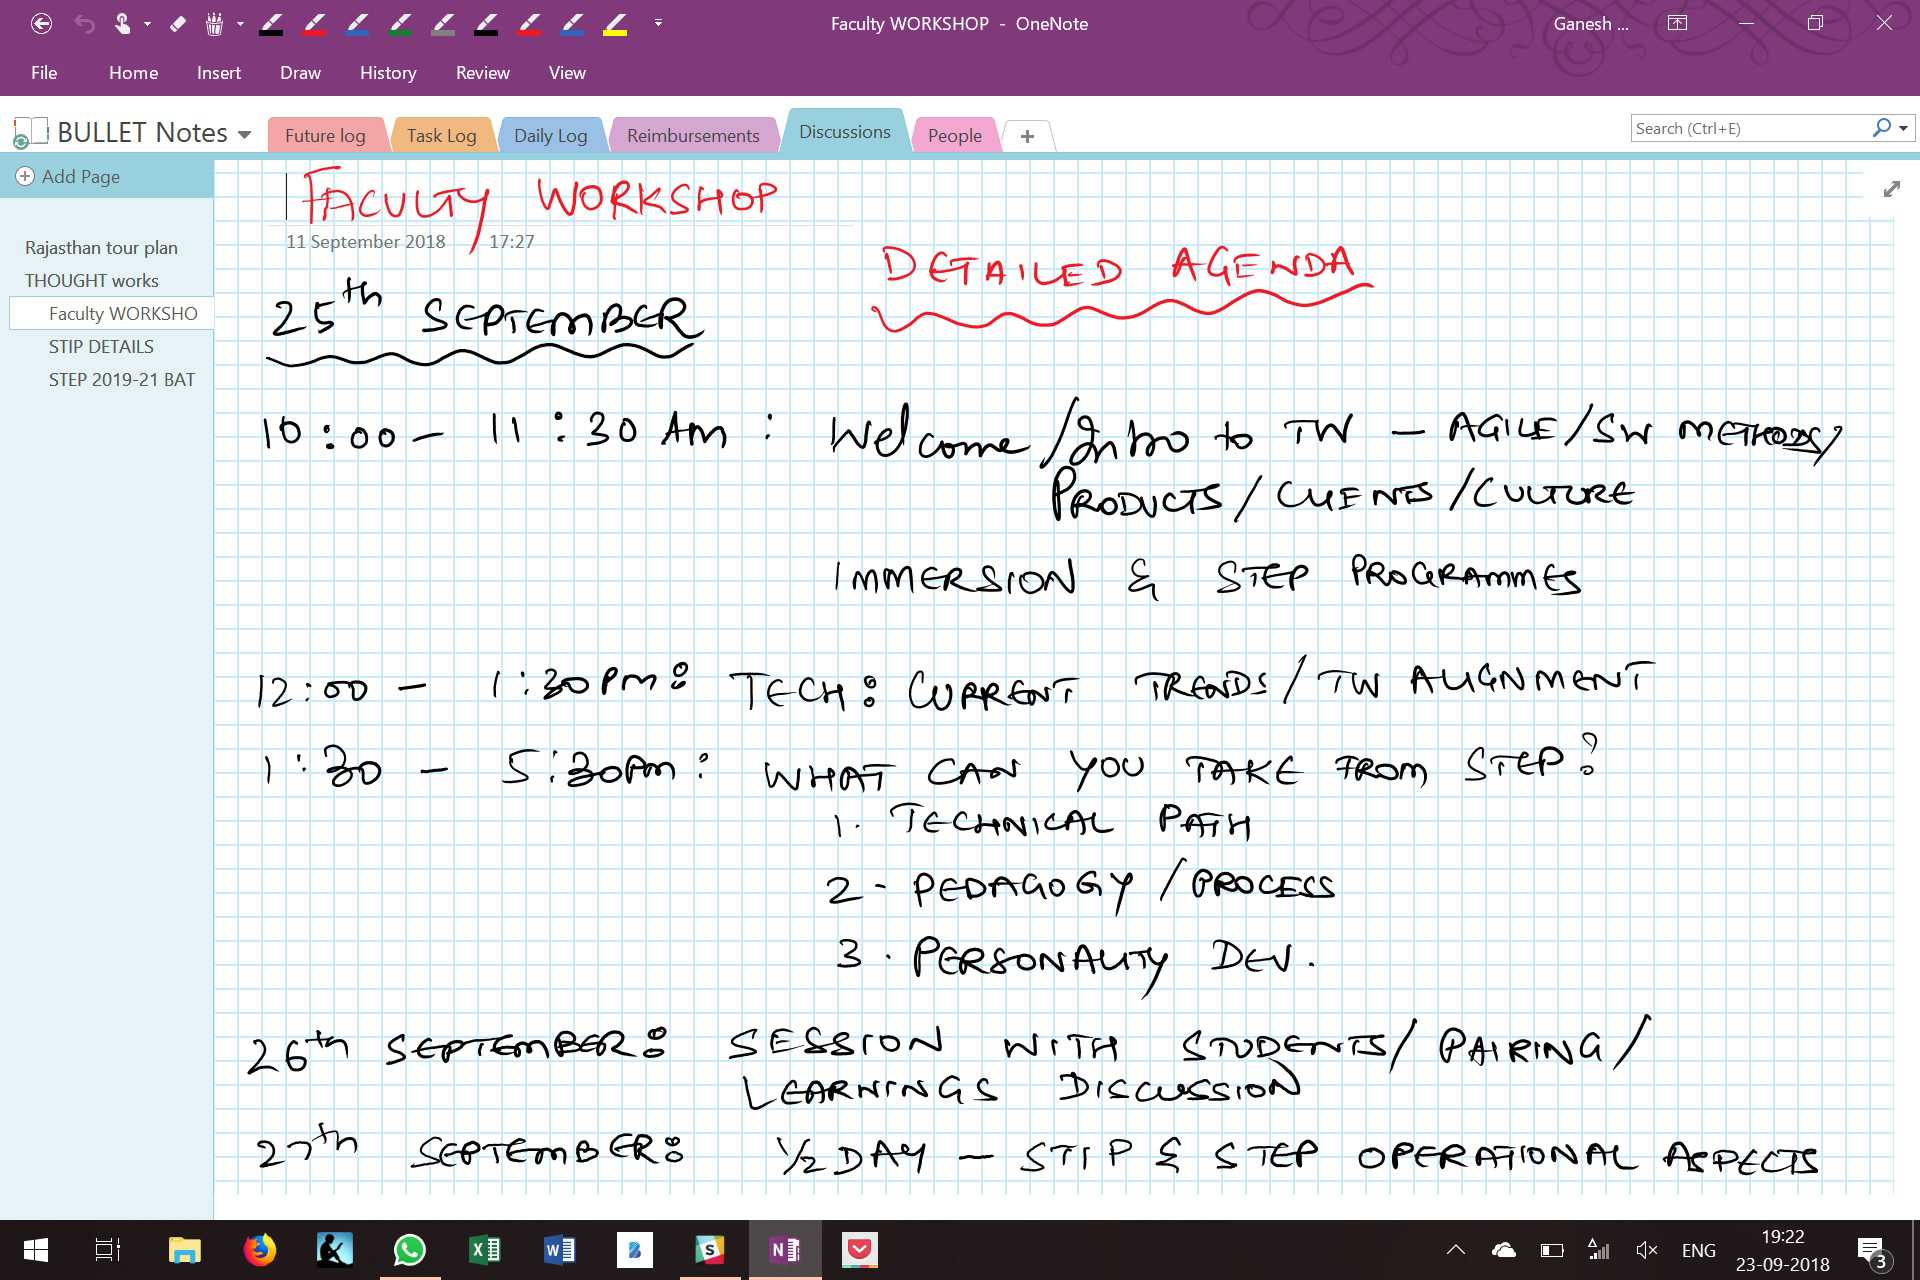 Faculty WORKSHOP - OneNote
Ganesh ...
File Home Insert Draw History Review View
BULLET Notes
Future log Task Log Daily Log Reimbursements Discussions People +
Search (Ctrl+E)
Add Page
Rajasthan tour plan
THOUGHT works
Faculty WORKSHO
STIP DETAILS
STEP 2019-21 BAT
FACULTY WORKSHOP
11 September 2018 17:27
DETAILED AGENDA
25th SEPTEMBER
10:00 - 11:30 AM : Welcome/Intro to TW - AGILE/SW METHODS/
PRODUCTS/CLIENTS/CULTURE
IMMERSION & STEP PROGRAMMES
12:00 - 1:30PM: TECH: CURRENT TRENDS/TW ALIGNMENT
1:30 - 5:30PM: WHAT CAN YOU TAKE FROM STEP?
1. TECHNICAL PATH
2. PEDAGOGY/PROCESS
3. PERSONALITY DEV.
26th SEPTEMBER: SESSION WITH STUDENTS/PAIRING/
LEARNINGS DISCUSSION
27th SEPTEMBER: 1/2 DAY - STIP & STEP OPERATIONAL ASPECTS
ENG
19:22
23-09-2018
3